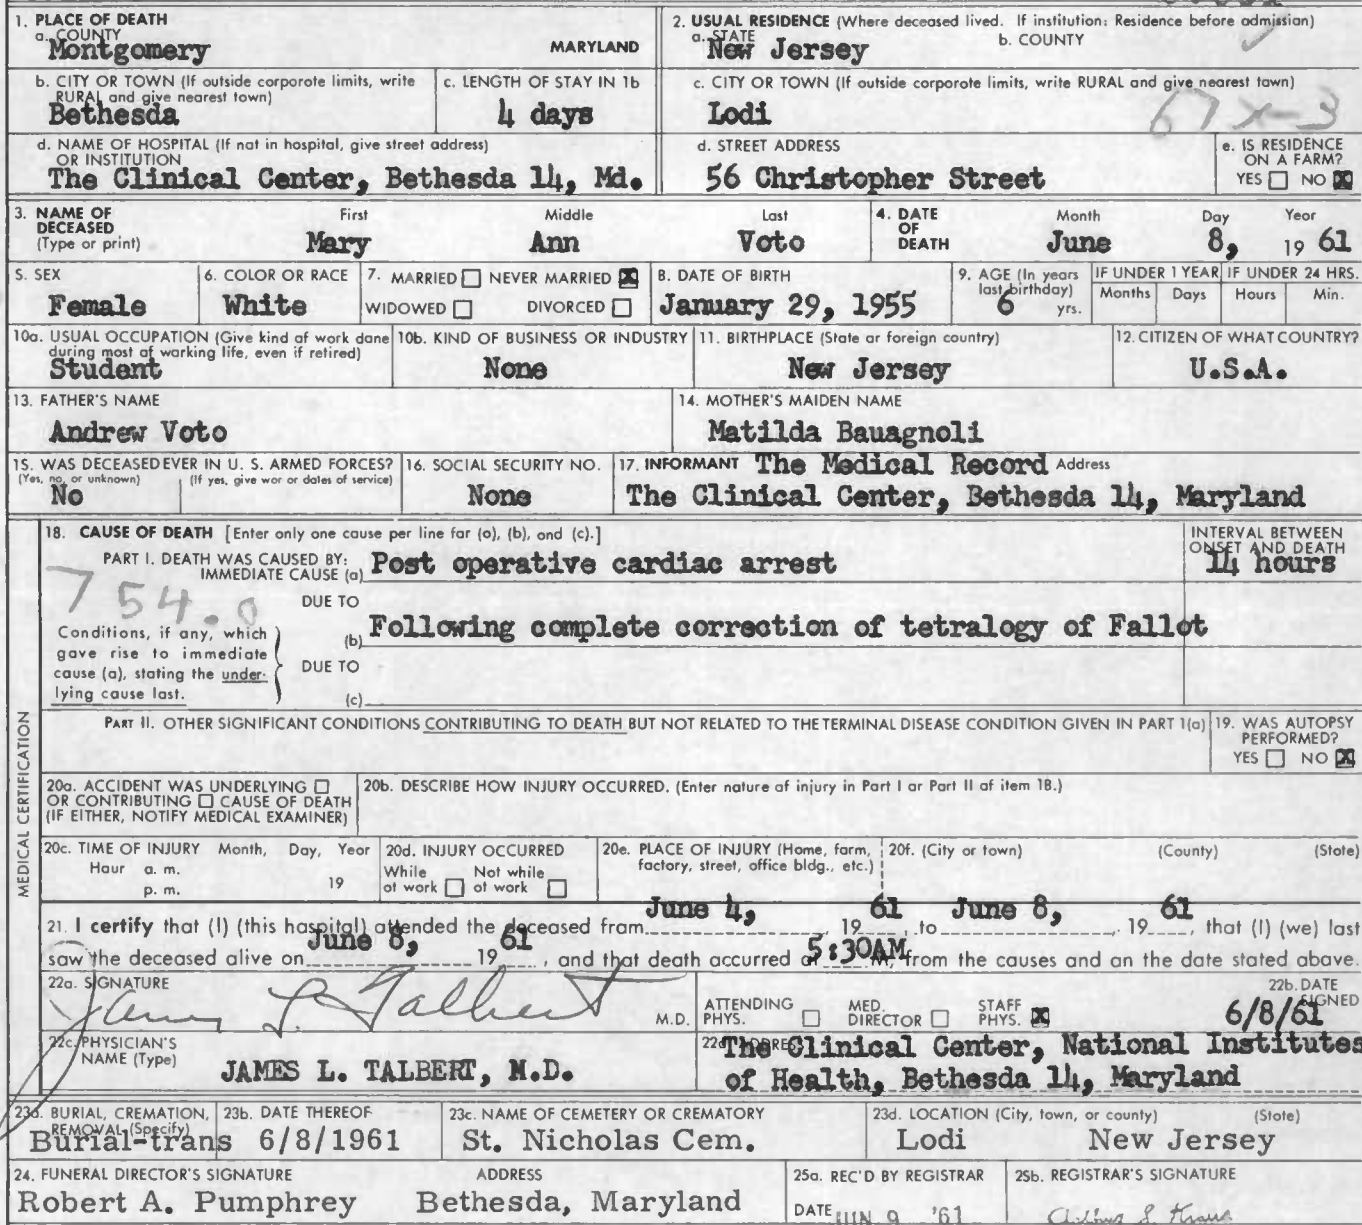 1. PLACE OF DEATH
a. COUNTY
Montgomery MARYLAND
2. USUAL RESIDENCE (Where deceased lived. If institution: Residence before admission)
a. STATE b. COUNTY
New Jersey
b. CITY OR TOWN (If outside corporate limits, write RURAL and give nearest town)
Bethesda
c. LENGTH OF STAY IN 1b
4 days
c. CITY OR TOWN (If outside corporate limits, write RURAL and give nearest town)
Lodi
67X-3
d. NAME OF HOSPITAL (If not in hospital, give street address)
OR INSTITUTION
The Clinical Center, Bethesda 14, Md.
d. STREET ADDRESS
56 Christopher Street
e. IS RESIDENCE
ON A FARM?
YES NO X
3. NAME OF
DECEASED
(Type or print)
First Middle Last
Mary Ann Voto
4. DATE
OF
DEATH
Month Day Year
June 8, 19 61
5. SEX
Female
6. COLOR OR RACE
White
7. MARRIED NEVER MARRIED X
WIDOWED DIVORCED
8. DATE OF BIRTH
January 29, 1955
9. AGE (In years
last birthday)
6 yrs.
IF UNDER 1 YEAR
Months Days
IF UNDER 24 HRS.
Hours Min.
10a. USUAL OCCUPATION (Give kind of work done
during most of working life, even if retired)
Student
10b. KIND OF BUSINESS OR INDUSTRY
None
11. BIRTHPLACE (State or foreign country)
New Jersey
12. CITIZEN OF WHAT COUNTRY?
U.S.A.
13. FATHER'S NAME
Andrew Voto
14. MOTHER'S MAIDEN NAME
Matilda Bauagnoli
15. WAS DECEASED EVER IN U. S. ARMED FORCES?
(Yes, no, or unknown) (If yes, give war or dates of service)
No
16. SOCIAL SECURITY NO.
None
17. INFORMANT The Medical Record Address
The Clinical Center, Bethesda 14, Maryland
MEDICAL CERTIFICATION
18. CAUSE OF DEATH [Enter only one cause per line for (a), (b), and (c).]
INTERVAL BETWEEN
ONSET AND DEATH
PART I. DEATH WAS CAUSED BY:
IMMEDIATE CAUSE (a) Post operative cardiac arrest 14 hours
754.0
DUE TO
Conditions, if any, which
gave rise to immediate
cause (a), stating the under-
lying cause last.
(b) Following complete correction of tetralogy of Fallot
DUE TO
(c)
PART II. OTHER SIGNIFICANT CONDITIONS CONTRIBUTING TO DEATH BUT NOT RELATED TO THE TERMINAL DISEASE CONDITION GIVEN IN PART 1(a)
19. WAS AUTOPSY
PERFORMED?
YES NO X
20a. ACCIDENT WAS UNDERLYING
OR CONTRIBUTING CAUSE OF DEATH
(IF EITHER, NOTIFY MEDICAL EXAMINER)
20b. DESCRIBE HOW INJURY OCCURRED. (Enter nature of injury in Part I or Part II of item 18.)
20c. TIME OF INJURY Month, Day, Year
Hour a. m.
p. m. 19
20d. INJURY OCCURRED
While at work Not while at work
20e. PLACE OF INJURY (Home, farm,
factory, street, office bldg., etc.)
20f. (City or town) (County) (State)
21. I certify that (I) (this hospital) attended the deceased from June 4, 19 61 to June 8, 19 61, that (I) (we) last
saw the deceased alive on June 8, 19 61, and that death occurred at 5:30AM M, from the causes and on the date stated above.
22a. SIGNATURE
James L. Talbert M.D.
ATTENDING PHYS. MED. DIRECTOR STAFF PHYS. X
22b. DATE SIGNED
6/8/61
22c. PHYSICIAN'S
NAME (Type)
JAMES L. TALBERT, M.D.
22d. ADDRESS
The Clinical Center, National Institutes
of Health, Bethesda 14, Maryland
23a. BURIAL, CREMATION,
REMOVAL (Specify)
Burial-trans
23b. DATE THEREOF
6/8/1961
23c. NAME OF CEMETERY OR CREMATORY
St. Nicholas Cem.
23d. LOCATION (City, town, or county) (State)
Lodi New Jersey
24. FUNERAL DIRECTOR'S SIGNATURE ADDRESS
Robert A. Pumphrey Bethesda, Maryland
25a. REC'D BY REGISTRAR
DATE JUN 9 '61
25b. REGISTRAR'S SIGNATURE